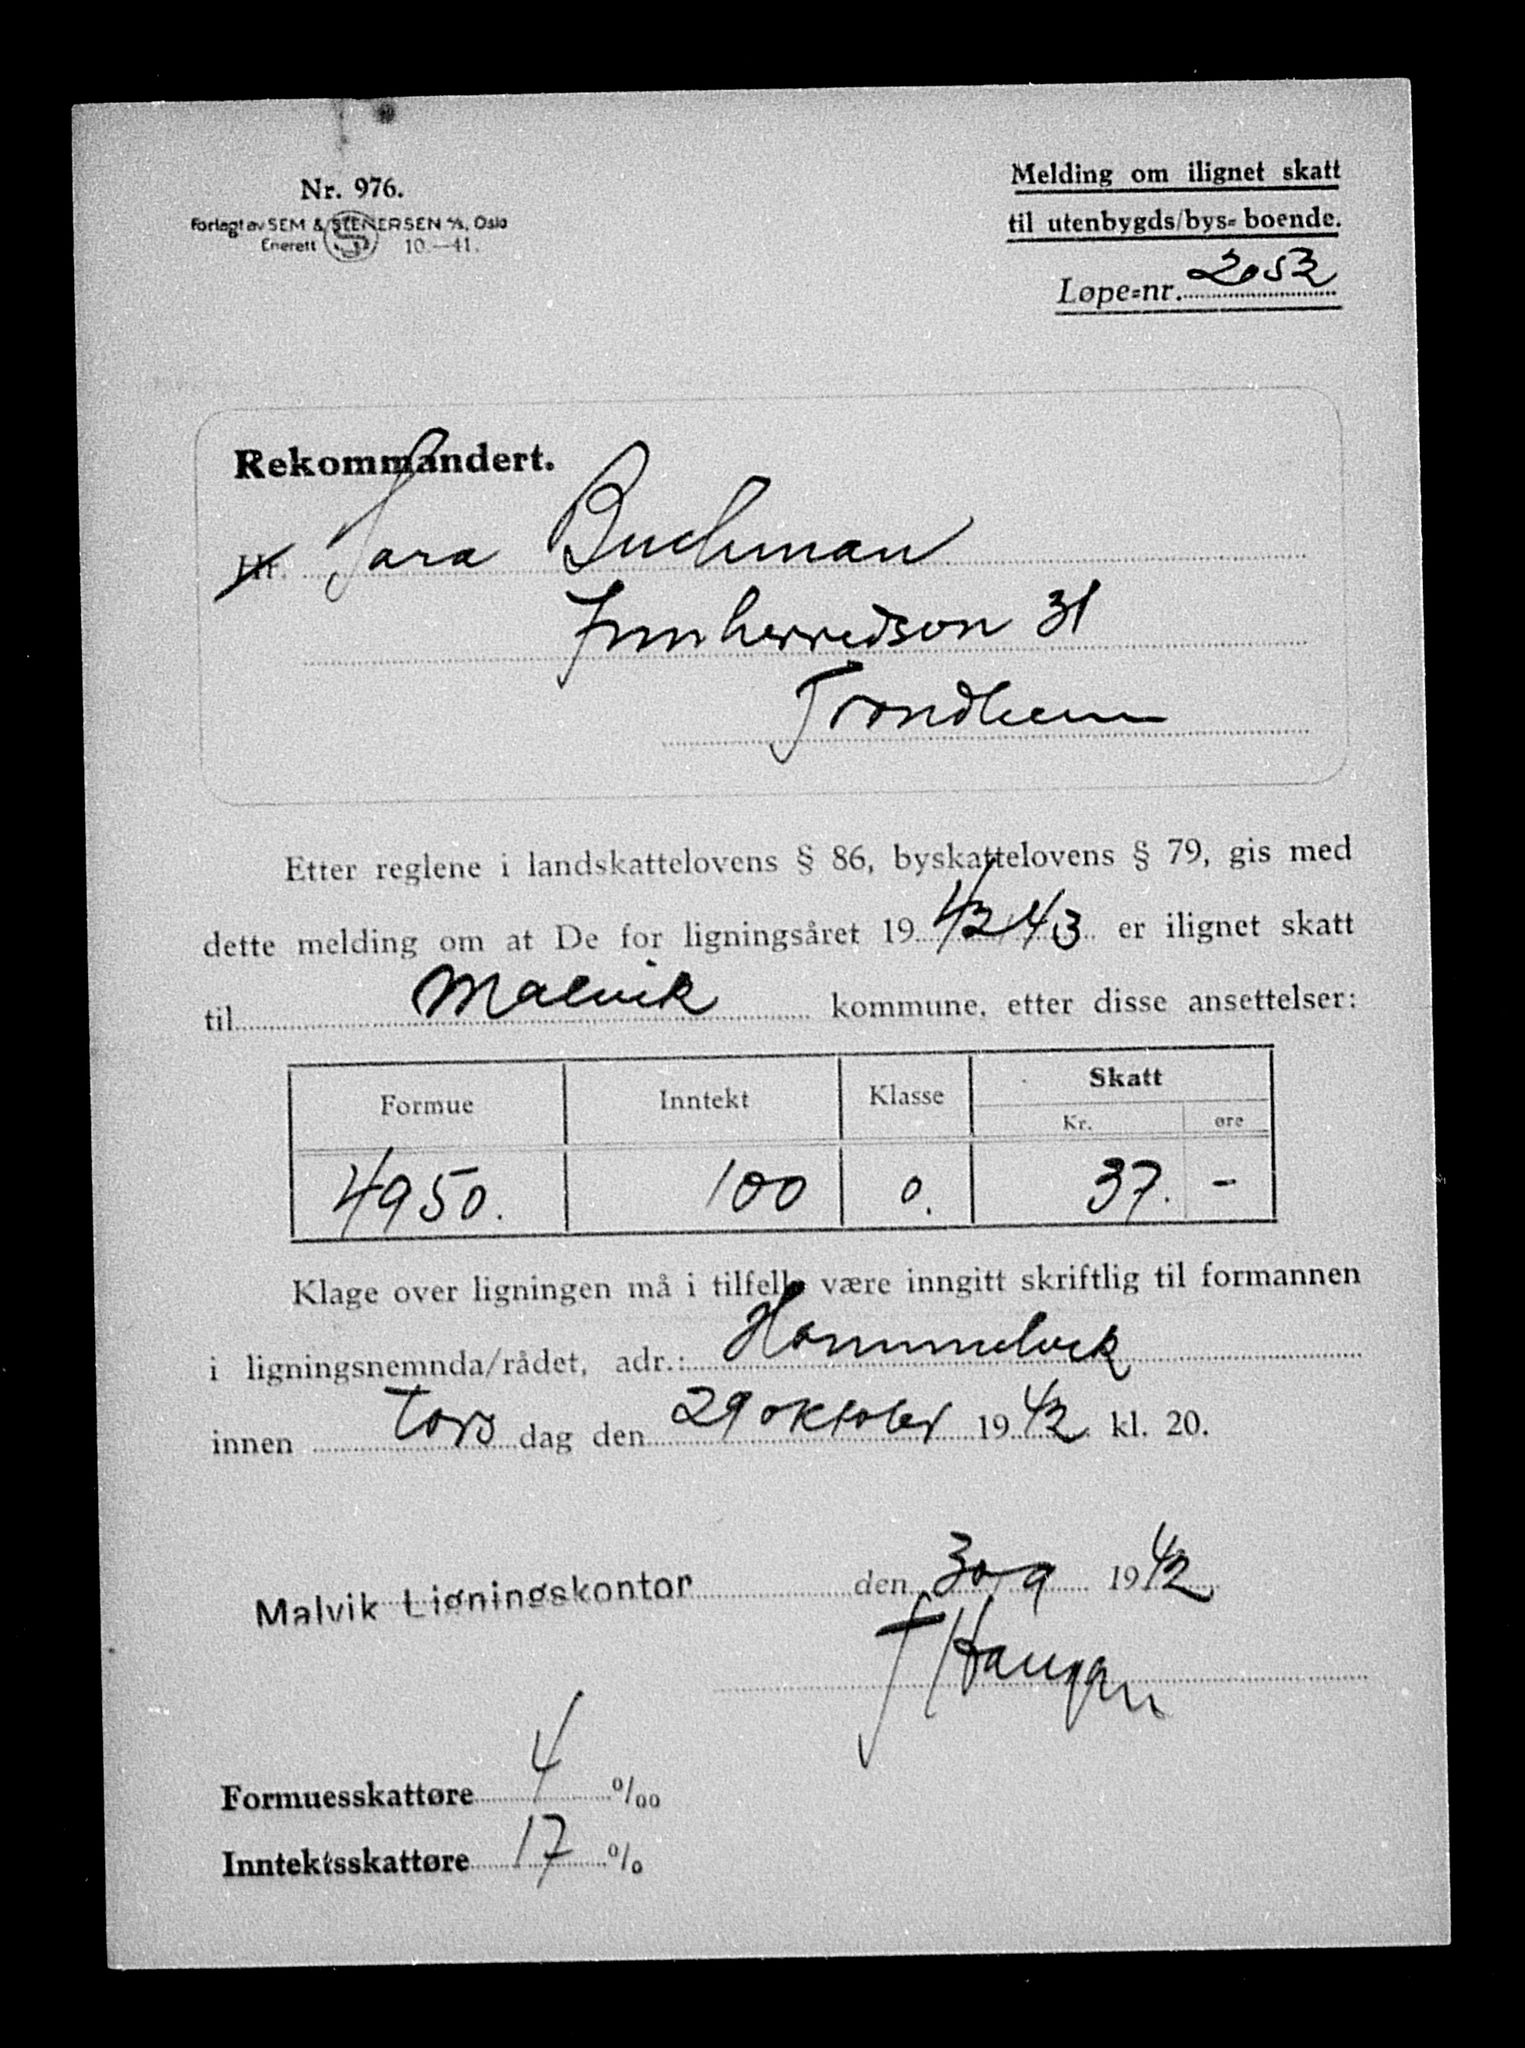 Nr. 976.
Forlagt av SEM & STENERSEN A/S, Oslo
Enerett S 10.—41.
Melding om ilignet skatt
til utenbygds/bys-boende.
Løpe-nr. 2052
Rekommandert.
Hr. Sara Buchman
Innherredsvn 31
Trondheim
Etter reglene i landskattelovens § 86, byskattelovens § 79, gis med
dette melding om at De for ligningsåret 1942/43 er ilignet skatt
til Malvik kommune, etter disse ansettelser:
Formue Inntekt Klasse Skatt
Kr. øre
4950. 100 0. 37. -
Klage over ligningen må i tilfelle være inngitt skriftlig til formannen
i ligningsnemnda/rådet, adr.: Hommelvik
innen torsdag den 29 oktober 1942 kl. 20.
Malvik Ligningskontor den 30/9 1942
J Haugan
Formuesskattøre 4 ‰
Inntektsskattøre 17 %